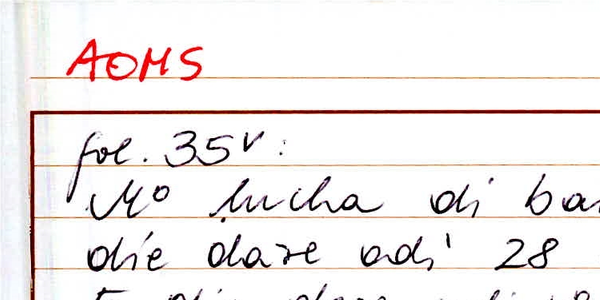 AOMS
fol. 35v:
Mo lucha di
die dare adi 28